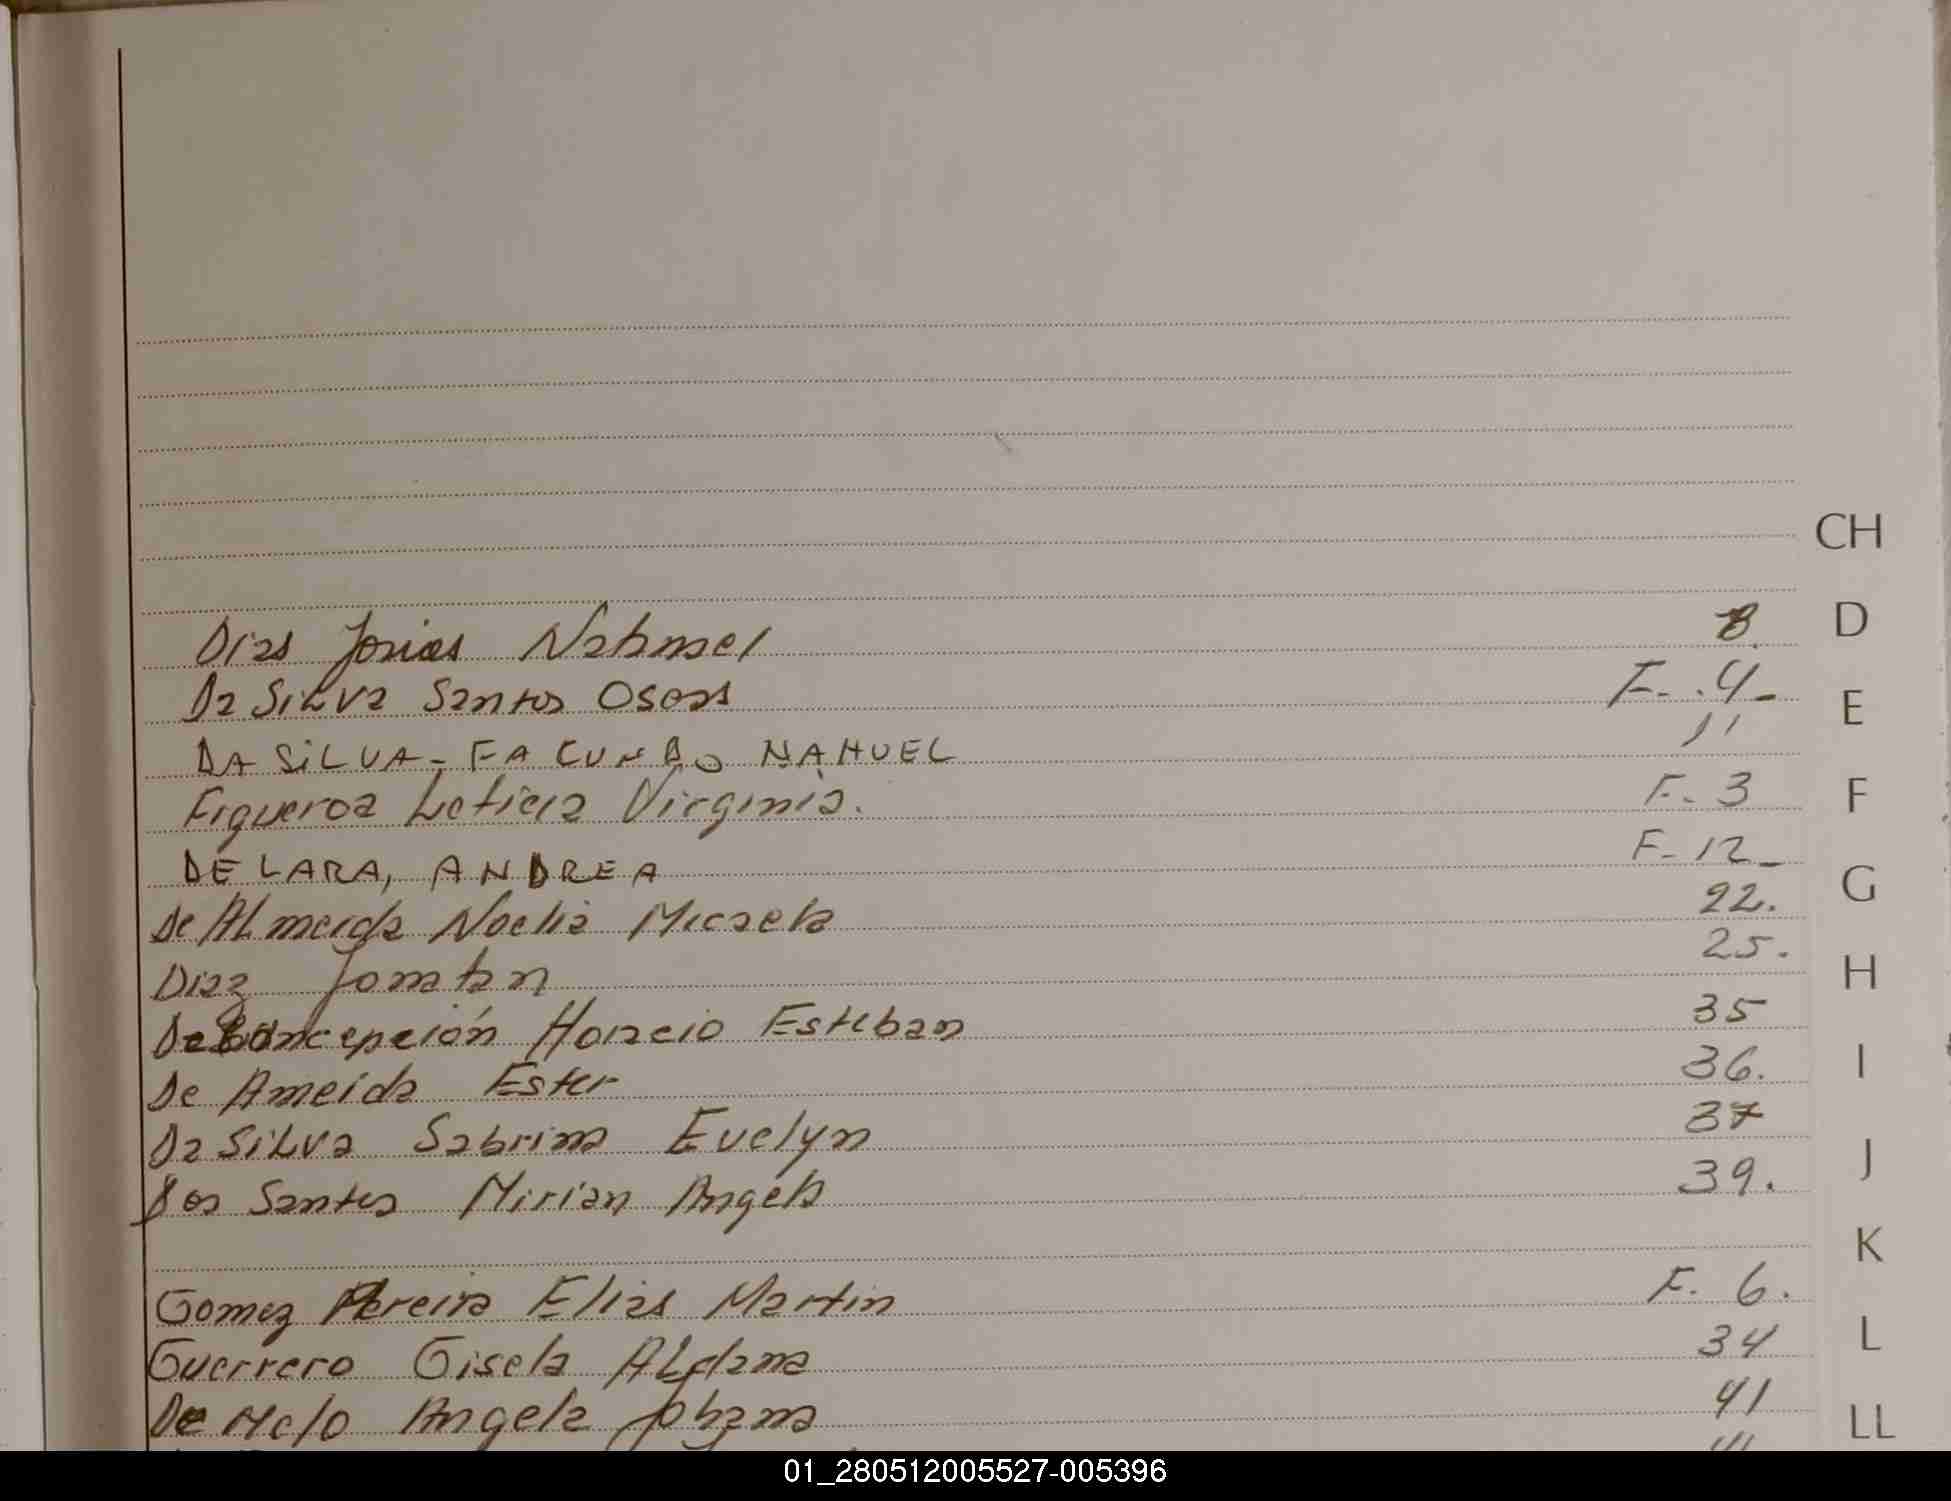 Dias Jonias Nahuel 8.
Da Silva Santos Oseas F- .4-
DA SILVA - FACUNDO NAHUEL 11
Figueroa Leticia Virginia. F. 3
DE LARA, ANDREA F- 12-
De Almeida Noelia Micaela 22.
Diaz Jonatan 25.
Concepción Horacio Esteban 35
De Ameida Ester 36.
Da Silva Sabrina Evelyn 37
Dos Santos Mirian Angela 39.
Gomez Pereira Elias Martin F. 6.
Guerrero Gisela Aldana 34
De Melo Angela Johana 41
CH
D
E
F
G
H
I
J
K
L
LL
01_280512005527-005396